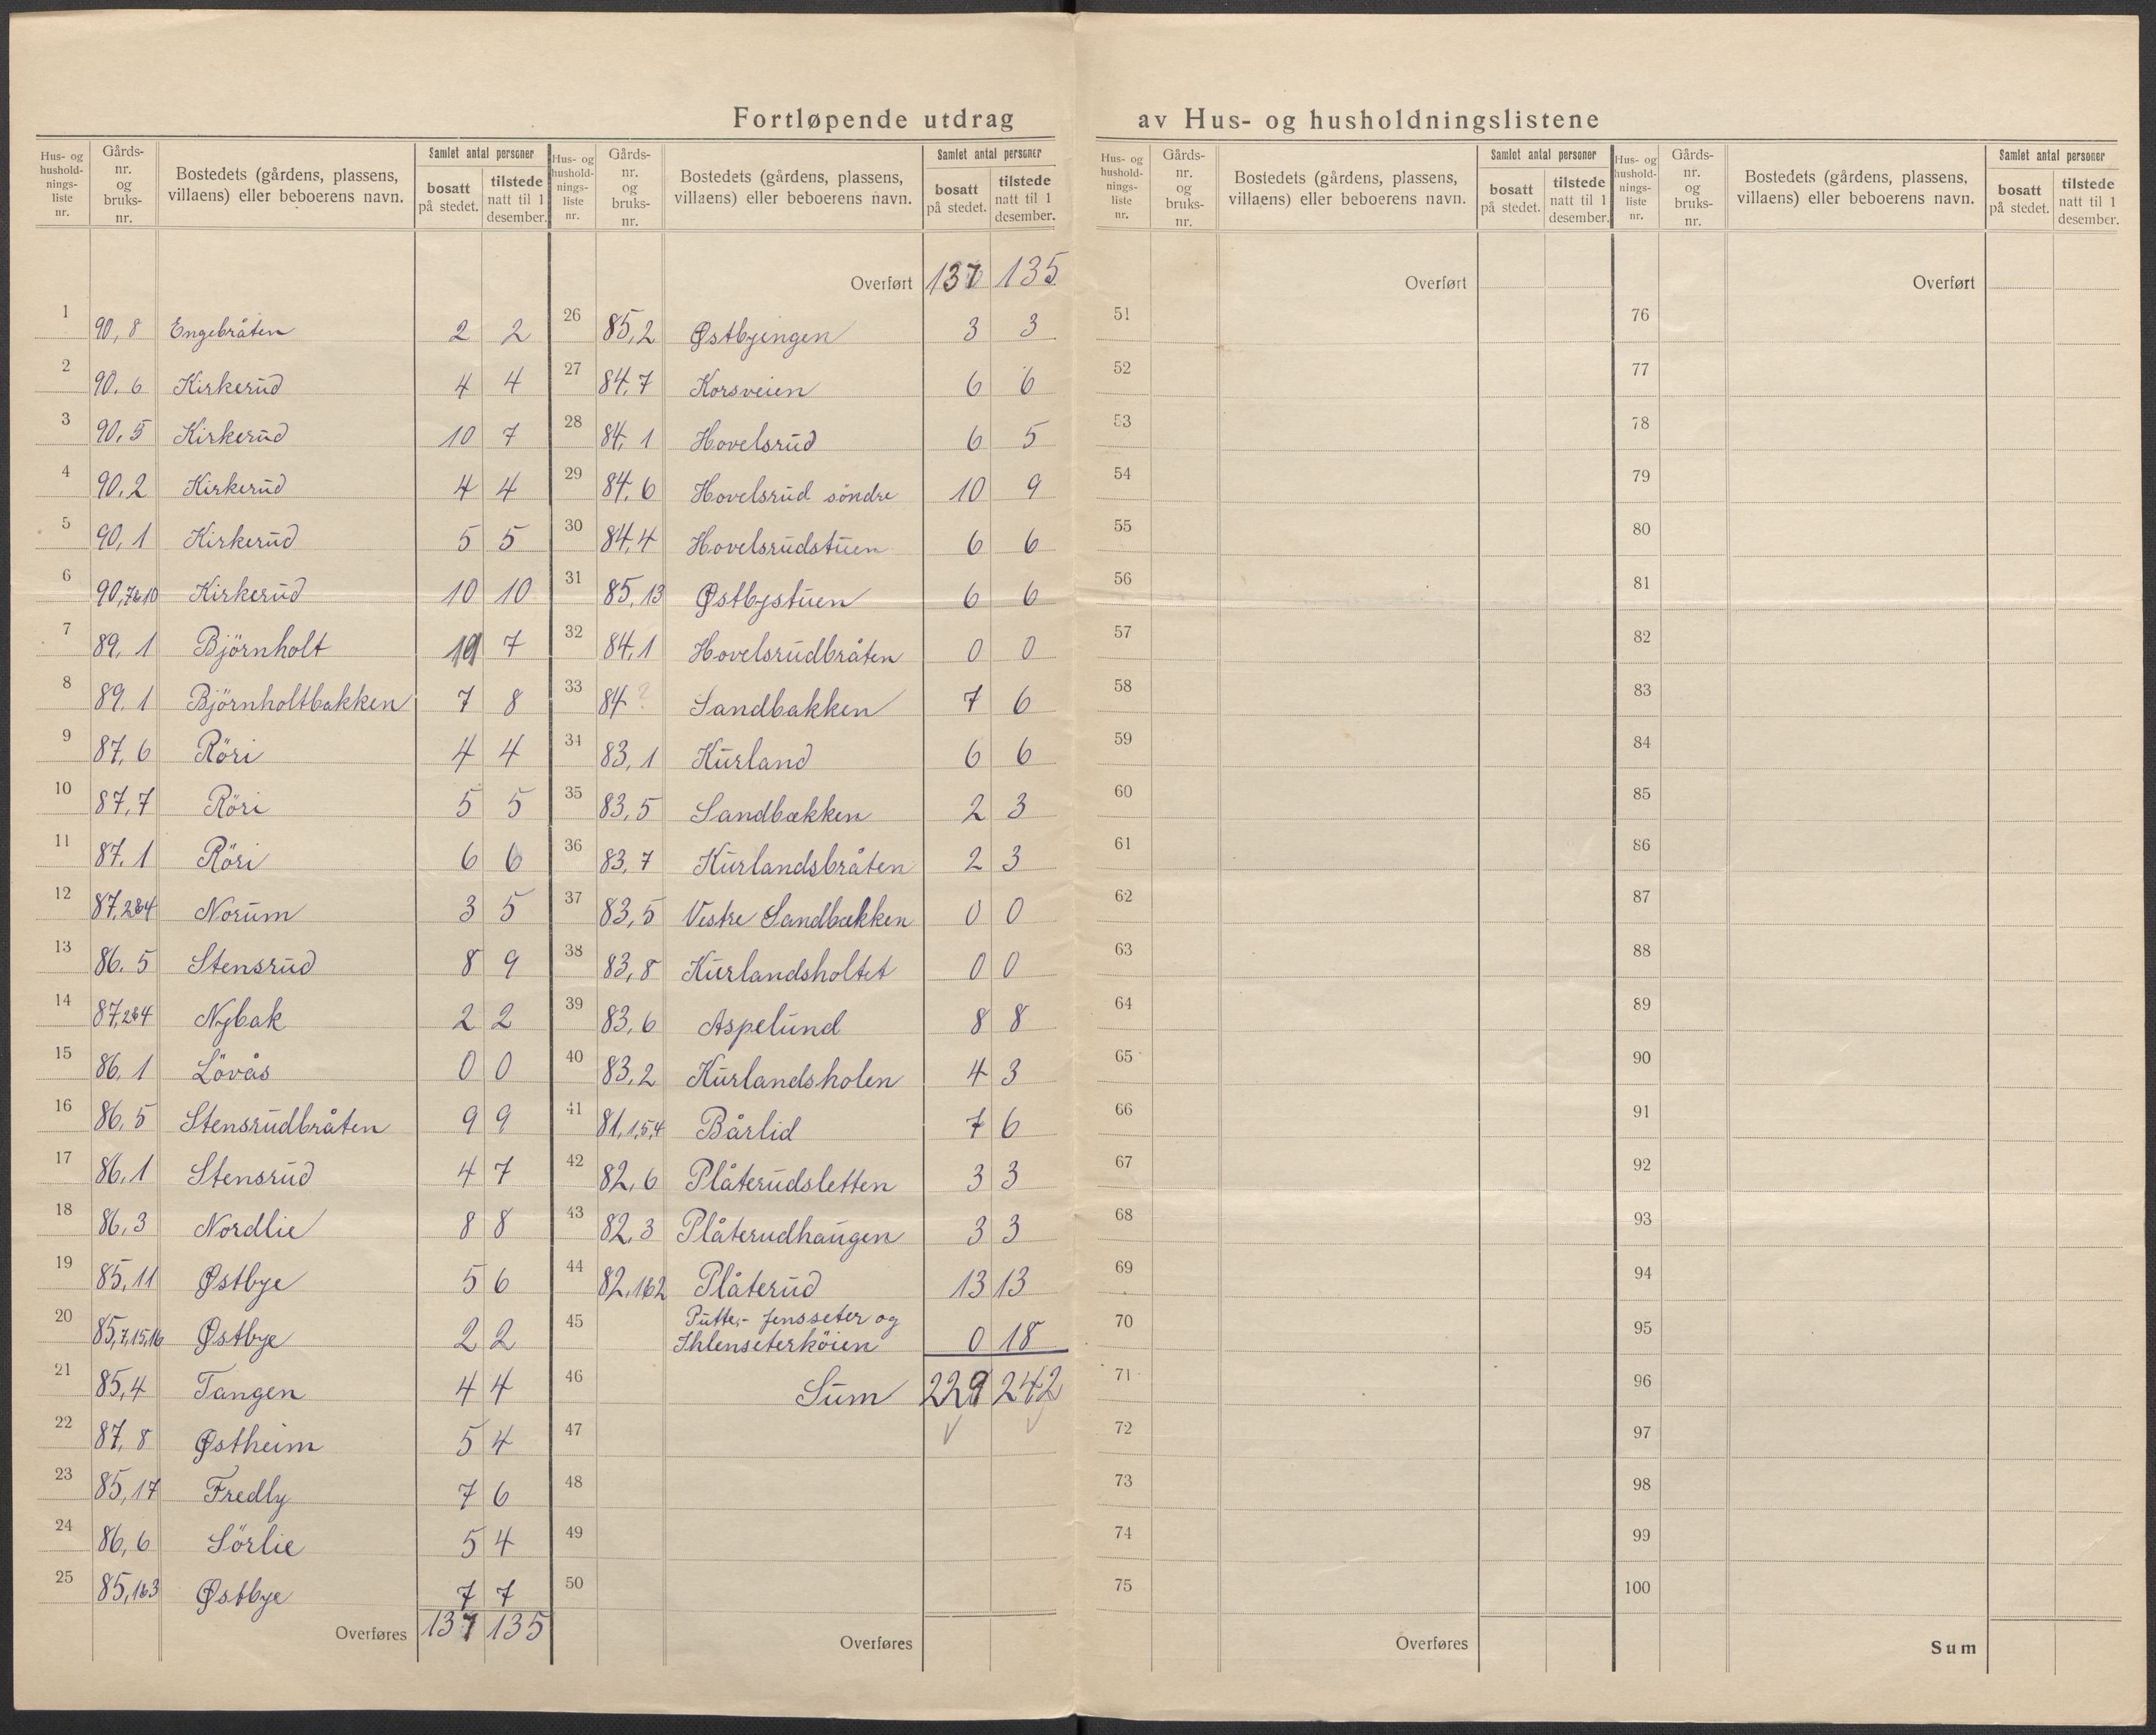 Fortløpende utdrag av Hus- og husholdningslistene
Hus- og husholdnings- liste nr. | Gårds- nr. og bruks- nr. | Bostedets (gårdens, plassens, villaens) eller beboerens navn. | Samlet antal personer | bosatt på stedet. | tilstede natt til 1 desember.
1 90,8 Engebråten 2 2
2 90,6 Kirkerud 4 4
3 90,5 Kirkerud 10 7
4 90,2 Kirkerud 4 4
5 90,1 Kirkerud 5 5
6 90,7&10 Kirkerud 10 10
7 89,1 Björnholt 7
8 89,1 Björnholtbakken 7 8
9 87,6 Röri 4 4
10 87,7 Röri 5 5
11 87,1 Röri 6 6
12 87,2&4 Norum 3 5
13 86,5 Stensrud 8 9
14 87,2&4 Nybak 2 2
15 86,1 Lövås 0 0
16 86,5 Stensrudbråten 9 9
17 86,1 Stensrud 4 7
18 86,3 Nordlie 8 8
19 85,11 Østbye 5 6
20 85,7,15,16 Østbye 2 2
21 85,4 Tangen 4 4
22 87,8 Østheim 5 4
23 85,17 Fredly 7 6
24 86,6 Sörlie 5 4
25 85,1&3 Østbye 7 7
Overføres 137 135
Hus- og husholdnings- liste nr. | Gårds- nr. og bruks- nr. | Bostedets (gårdens, plassens, villaens) eller beboerens navn. | Samlet antal personer | bosatt på stedet. | tilstede natt til 1 desember.
Overført 137 135
26 85,2 Østbyengen 3 3
27 84,7 Korsveien 6 6
28 84,1 Hovelsrud 6 5
29 84,6 Hovelsrud söndre 10 9
30 84,4 Hovelsrudstuen 6 6
31 85,13 Østbystuen 6 6
32 84,1 Hovelsrudbråten 0 0
33 84 ? Sandbakken 7 6
34 83,1 Kurland 6 6
35 83,5 Sandbækken 2 3
36 83,7 Kurlandsbråten 2 3
37 83,5 Vestre Sandbækken 0 0
38 83,8 Kurlandsholtet 0 0
39 83,6 Aspelund 8 8
40 83,2 Kurlandsholen 4 3
41 81,1,5,4 Bårlid 7 6
42 82,6 Plåterudsletten 3 3
43 82,3 Plåterudhaugen 3 3
44 82,1&2 Plåterud 13 13
45 Putte,- Jensseter og
Ihlenseterköien 0 18
46 Sum 229 242
47
48
49
50
Overføres
Hus- og husholdnings- liste nr. | Gårds- nr. og bruks- nr. | Bostedets (gårdens, plassens, villaens) eller beboerens navn. | Samlet antal personer | bosatt på stedet. | tilstede natt til 1 desember.
Overført
51
52
53
54
55
56
57
58
59
60
61
62
63
64
65
66
67
68
69
70
71
72
73
74
75
Overføres
Hus- og husholdnings- liste nr. | Gårds- nr. og bruks- nr. | Bostedets (gårdens, plassens, villaens) eller beboerens navn. | Samlet antal personer | bosatt på stedet. | tilstede natt til 1 desember.
Overført
76
77
78
79
80
81
82
83
84
85
86
87
88
89
90
91
92
93
94
95
96
97
98
99
100
Sum